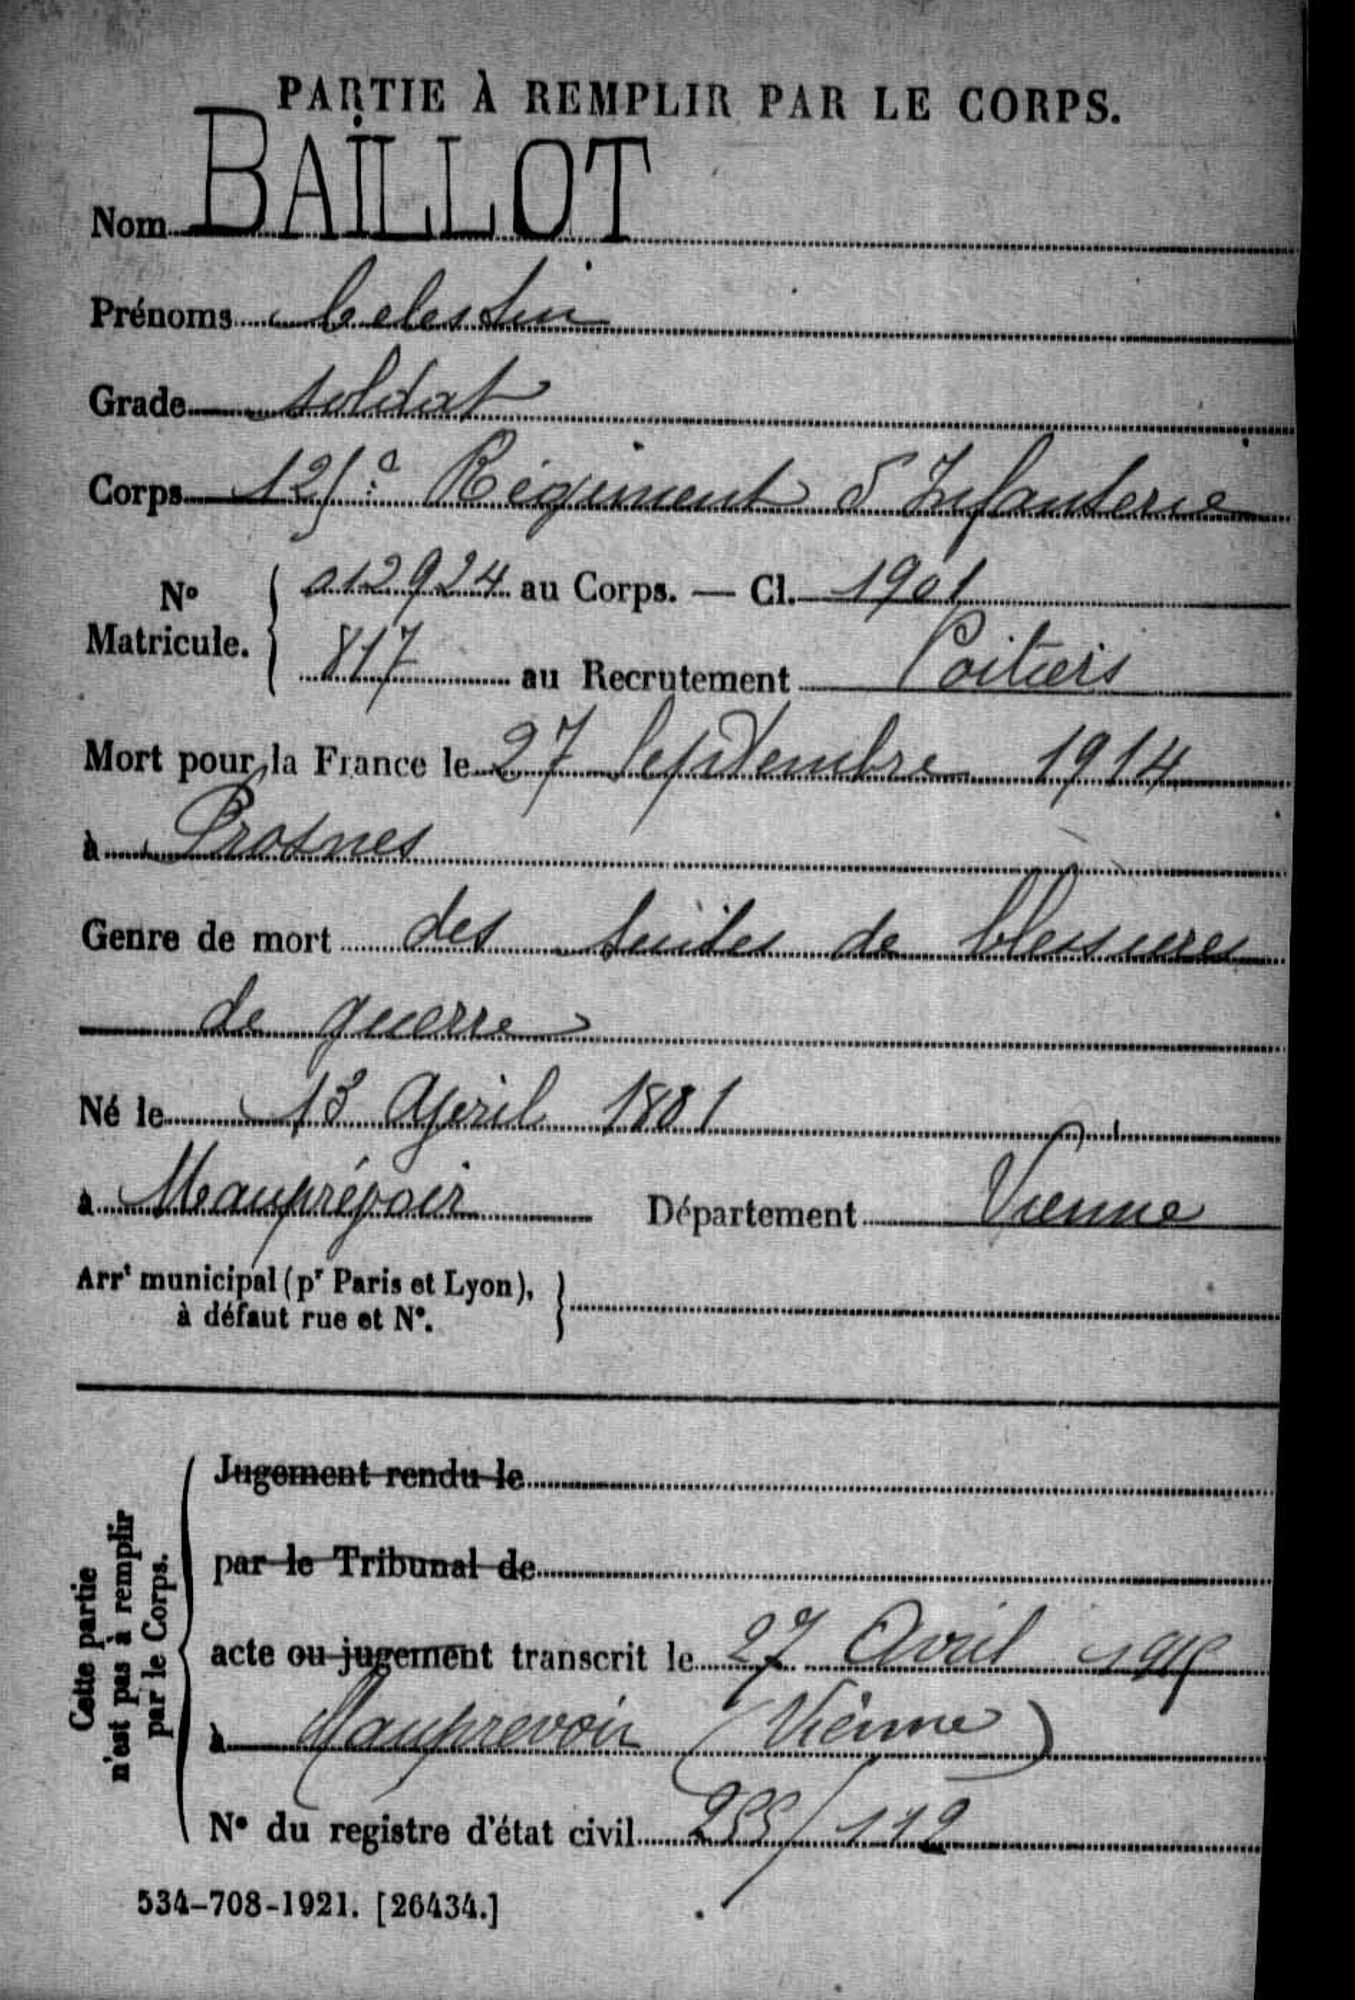 PARTIE À REMPLIR PAR LE CORPS.
Nom BAILLOT
Prénoms Celestin
Grade soldat
Corps 125e Régiment d'Infanterie
No Matricule. { 012924 au Corps. — Cl. 1901
817 au Recrutement Poitiers
Mort pour la France le 27 Septembre 1914
à Prosnes
Genre de mort des suites de blessures
de guerre
Né le 13 Avril 1881
à Mauprévoir Département Vienne
Arrt municipal (pr Paris et Lyon),
à défaut rue et N°.
Cette partie
n'est pas à remplir
par le Corps.
Jugement rendu le
par le Tribunal de
acte ou jugement transcrit le 27 Avril 1915
à Mauprevoir (Vienne)
N° du registre d'état civil 255/112
534-708-1921. [26434.]